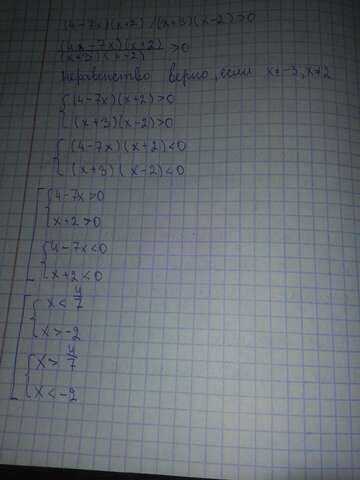 (4-7x)(x+2)/(x+3)(x-2)>0
(4x-7x)(x+2)/(x+3)(x-2) >0
Неравенство верно, если x≠-3, x≠2
(4-7x)(x+2)>0
(x+3)(x-2)>0
(4-7x)(x+2)<0
(x+3)(x-2)<0
4-7x>0
x+2>0
4-7x<0
x+2<0
x<4/7
x>-2
x>4/7
x<-2